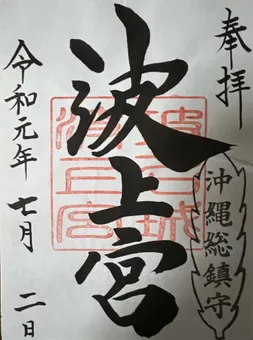 奉拝
沖縄総鎮守
波上宮
令和元年 七月 二日